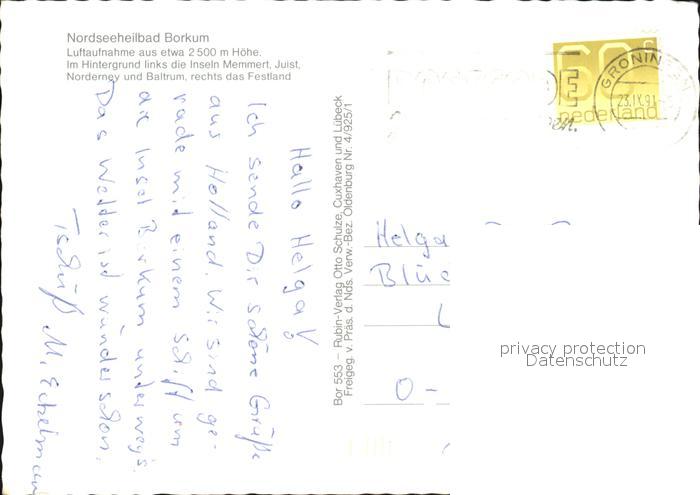 Nordseeheilbad Borkum
Luftaufnahme aus etwa 2500 m Höhe.
Im Hintergrund links die Inseln Memmert, Juist,
Norderney und Baltrum, rechts das Festland
Hallo Helga!
Ich sende Dir schöne Grüße
aus Holland. Wir sind ge-
rade mit einem Schiff um
die Insel Borkum unterwegs.
Das Wetter ist wunderschön.
Tschüß M. Eckelmann
Bor 553 — Rubin-Verlag Otto Schulze, Cuxhaven und Lübeck
Freigeg. v. Präs. d. Nds. Verw.-Bez. Oldenburg Nr. 4/925/1
60 c
nederland
GRONIN
23.IX.91
Helga
Blüc
O-
privacy protection
Datenschutz